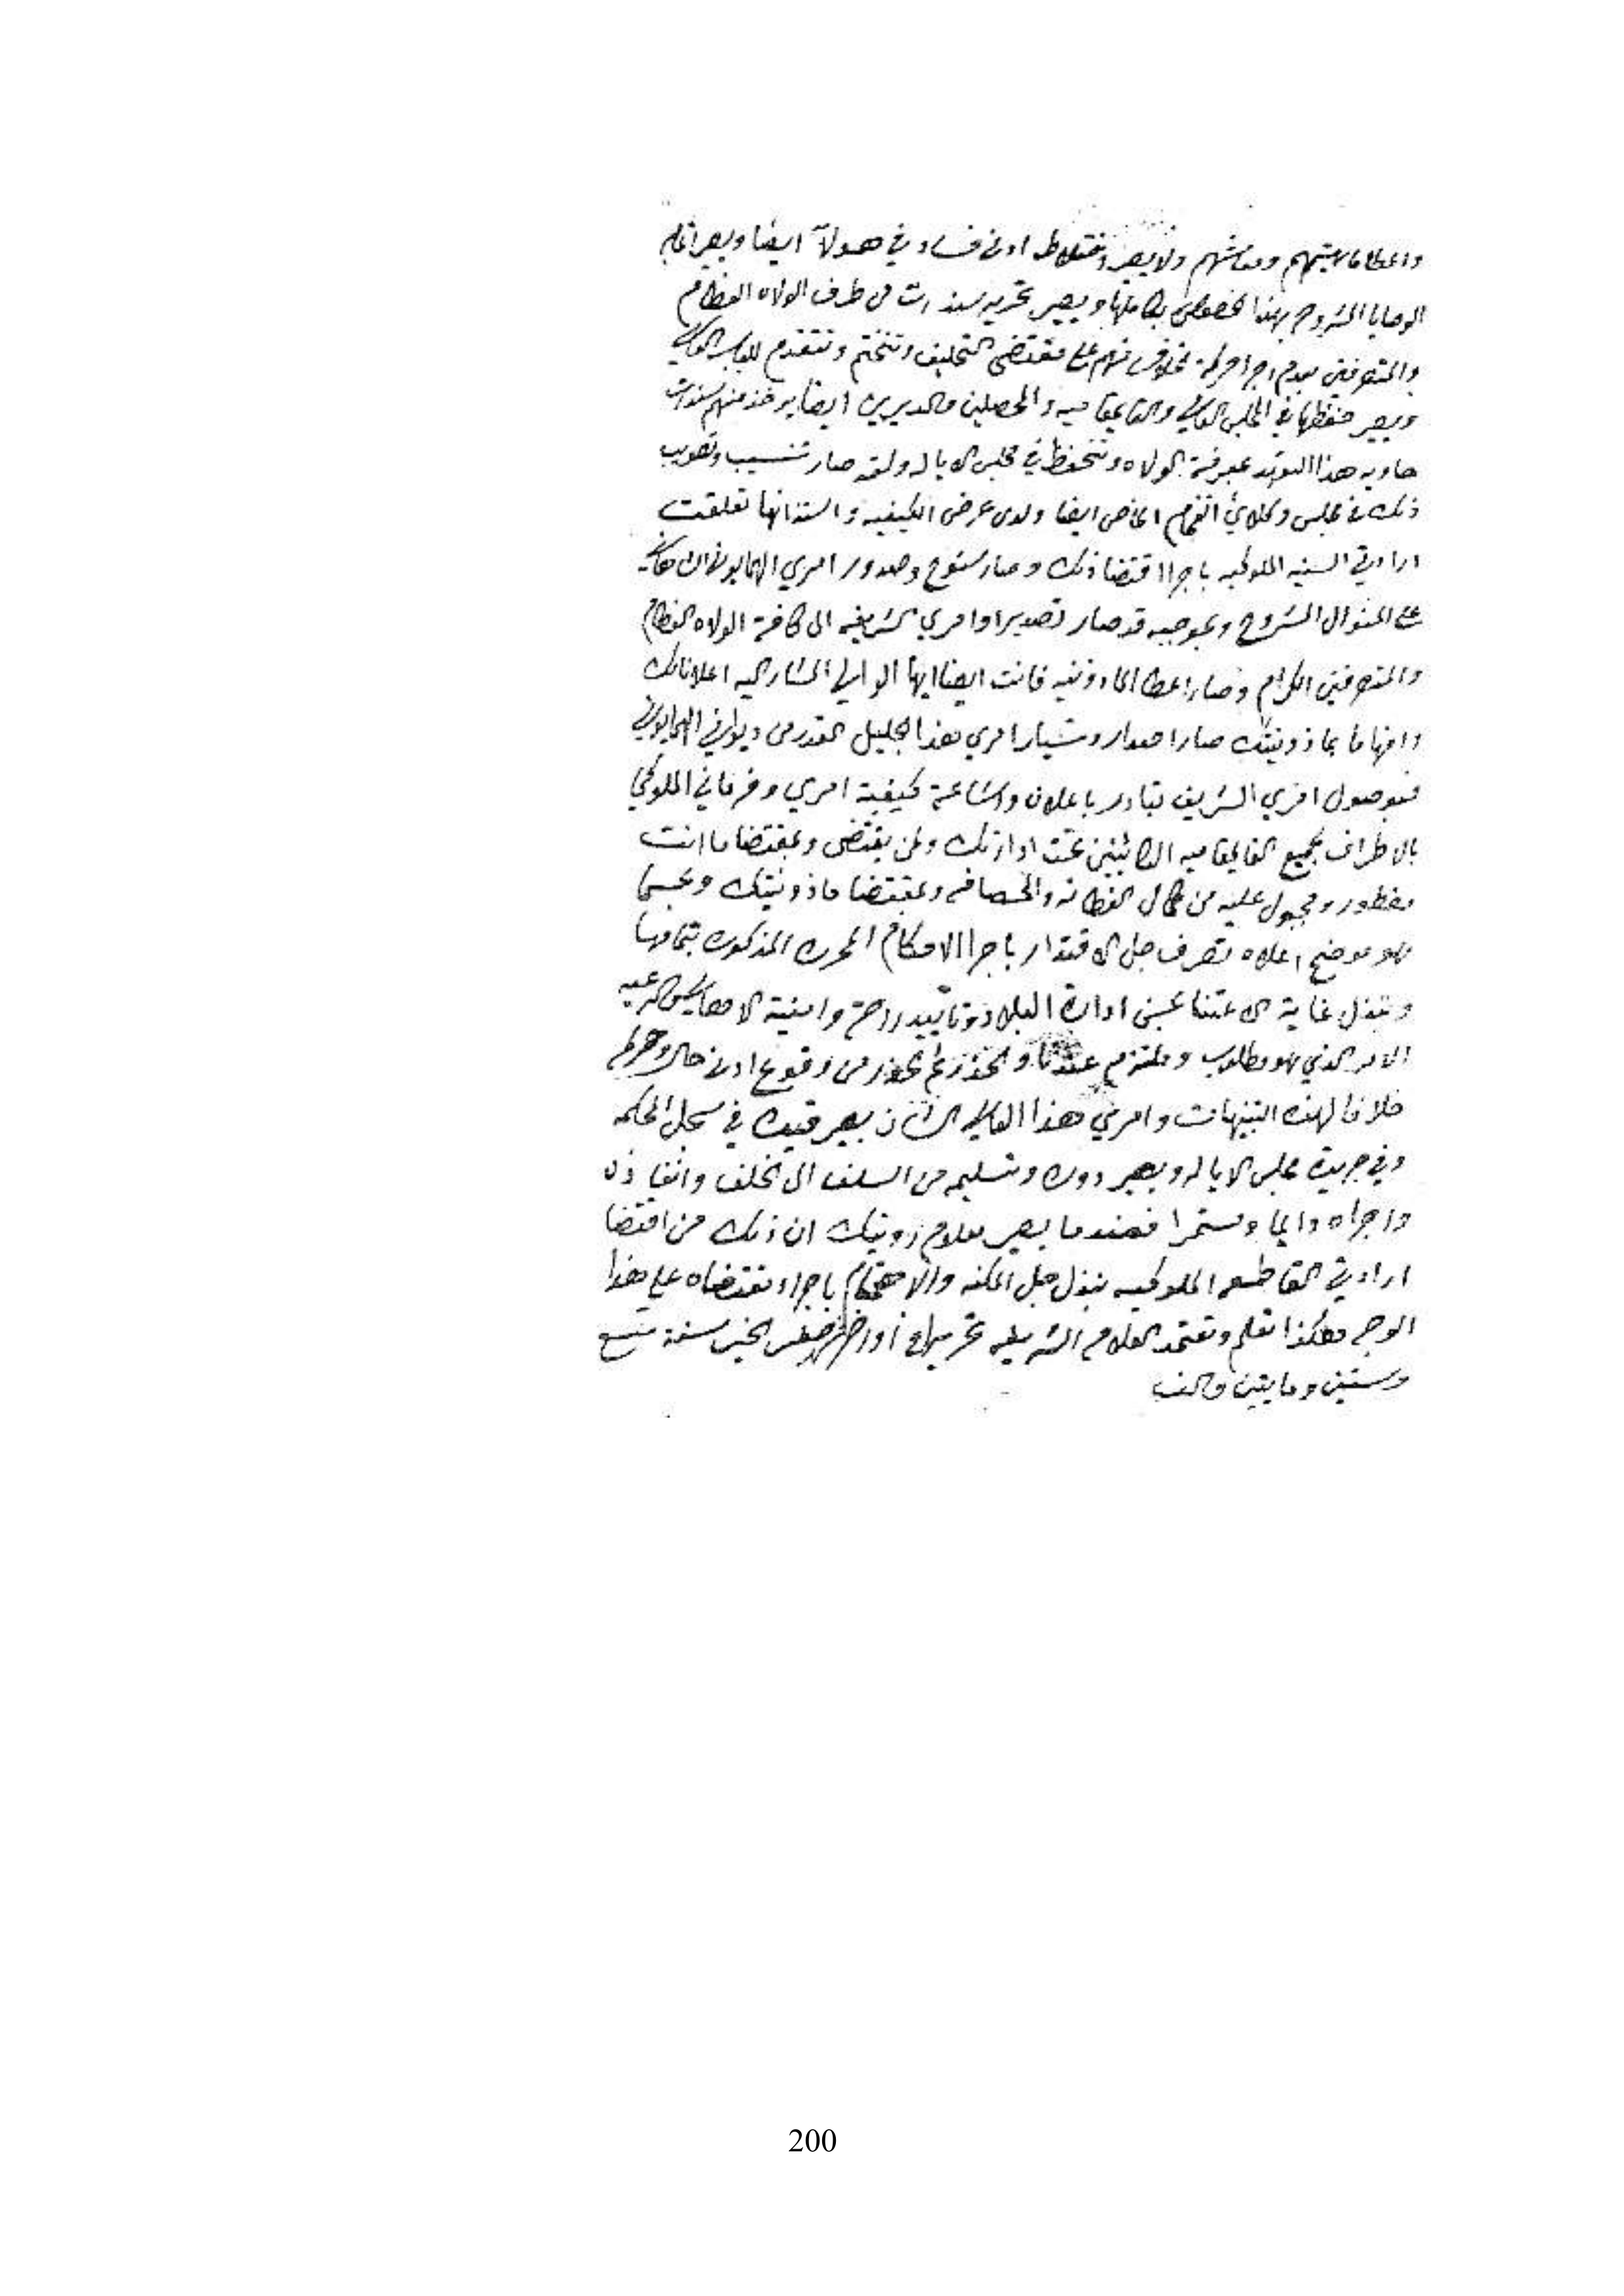 واعطا ماهيتهم ومعاشهم ولا يصير اختلاط ادنى فساد في هولآ ايضا ويصير
الوصايا المشروحه بهذا الخصوص بكاملها ويصير تحرير سندات من طرف الولاه العظام
والمتصرفين بعدم اجرا حركة منهم على مقتضى التحليف وتنختم وتتقدم للباب العالي
ويصير حفظها في المجلس العالي والقايمقاميه والمحصلين والمديرين ايضا يوخذ منهم سندات
حاويه هذا التعهد بمعرفة الولاه وتنحفظ في مجلس الاياله ولقد صار تنسيب وتصويب
ذلك في مجلس وكلاي الخاص ايضا ولدى عرض الكيفيه واستذانها تعلقت
ارادتي السنيه الملوكيه باجرا اقتضا ذلك وصار سنوح وصدور امري الهمايوني
على المنوال المشروح وبموجبه قد صار تصدير اوامري الشريفه الى كافة الولاه العظام
والمتصرفين الكرام وصار اعطا الماذونيه فانت ايضا ايها الوالي المشار اليه اعلانا لك
وافهاما بماذونيتك صار اصدار امري هذا الجليل القدر من ديواني الهمايوني
فبوصول امري الشريف تبادر باعلان واشاعة كيفية امري وفرماني الملوكي
بالاطراف لجميع القايمقاميه الكائنين تحت ادارتك ولمن يقتضى وبمقتضا ما انت
مفطور ومجبول عليه من كمال الفطانه والحصافه وبمقتضا ماذونيتك وبحسبما
هو موضح اعلاه تصرف جل الاقتدار باجرا الاحكام المحرره المذكوره بتمامها
وتبذل غاية الاعتنا بحسن ادارة البلاد وتاييد راحة وامنية الرعيه
الامر الذي هو مطلوب وملتزم عندنا والحذر ثم الحذر من وقوع ادنى حال وحركه
خلافا لهذه التنبيهات وامري هذا العالي الشان يصير قيده في سجل المحكمه
وفي جريدة مجلس الاياله ويصير دوره وتسليمه من السلف الى الخلف وانفاذه
واجراه دايما ومستمرا فعندما يصير معلوم رويتك ان ذلك من اقتضا
ارادتي القاطعه الملوكيه تبذل جل المكنه والاهتمام باجراء مقتضاه على هذا
الوجه هكذا تعلم وتعتمد العلامه الشريفه تحريرا في اواخر صفر الخير سنة تسع
وستين ومايتين والف
200